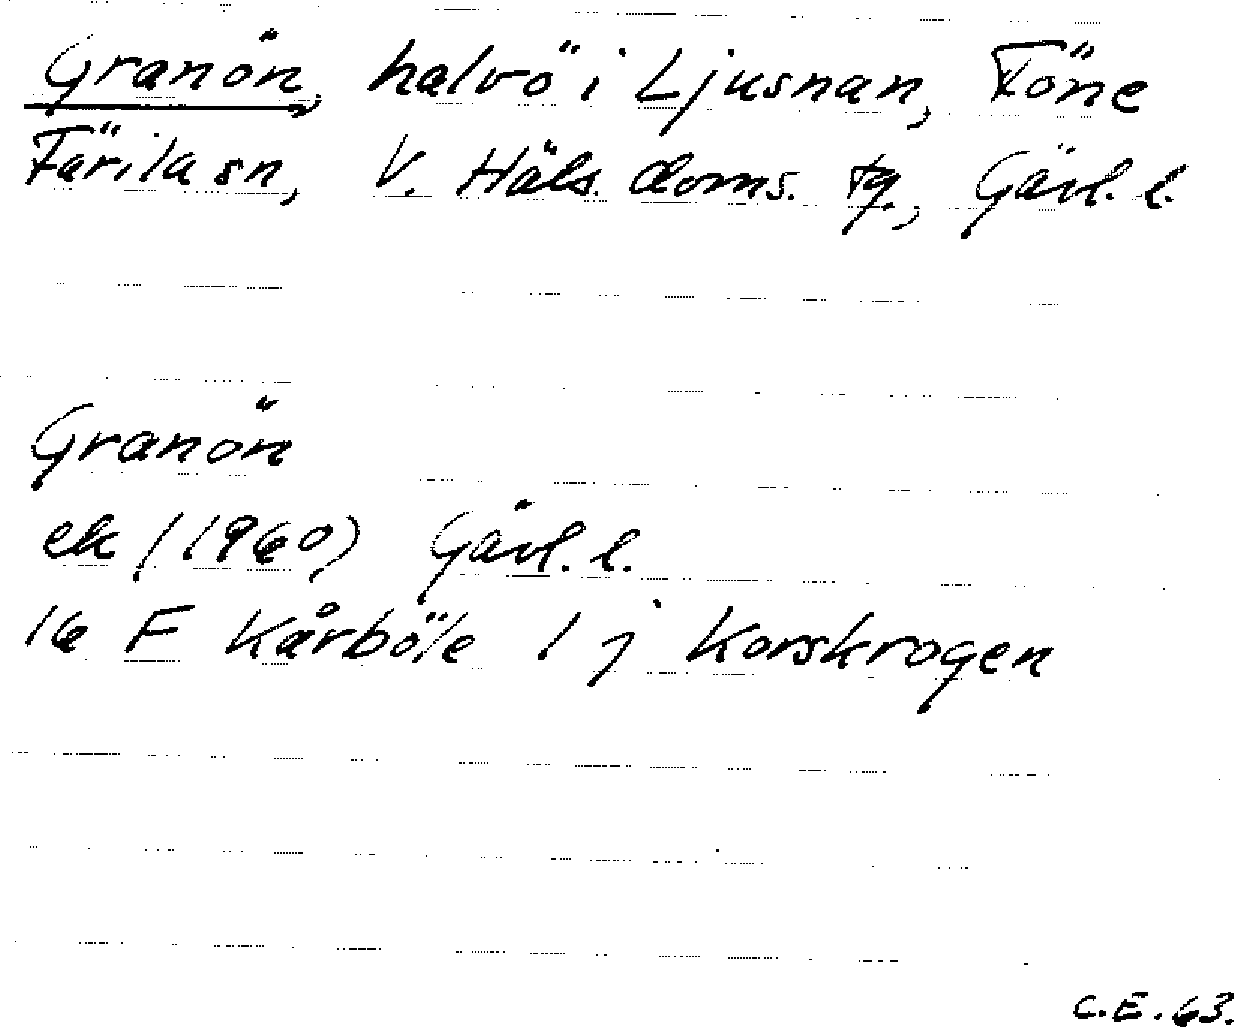 Granön, halvö i Ljusnan, Föne
Färila sn, V. Häls. doms. tg., Gävl. l.
Granön
ek (1960) Gävl. l.
16 F Kårböle 1 j Korskrogen
C.E. 63.